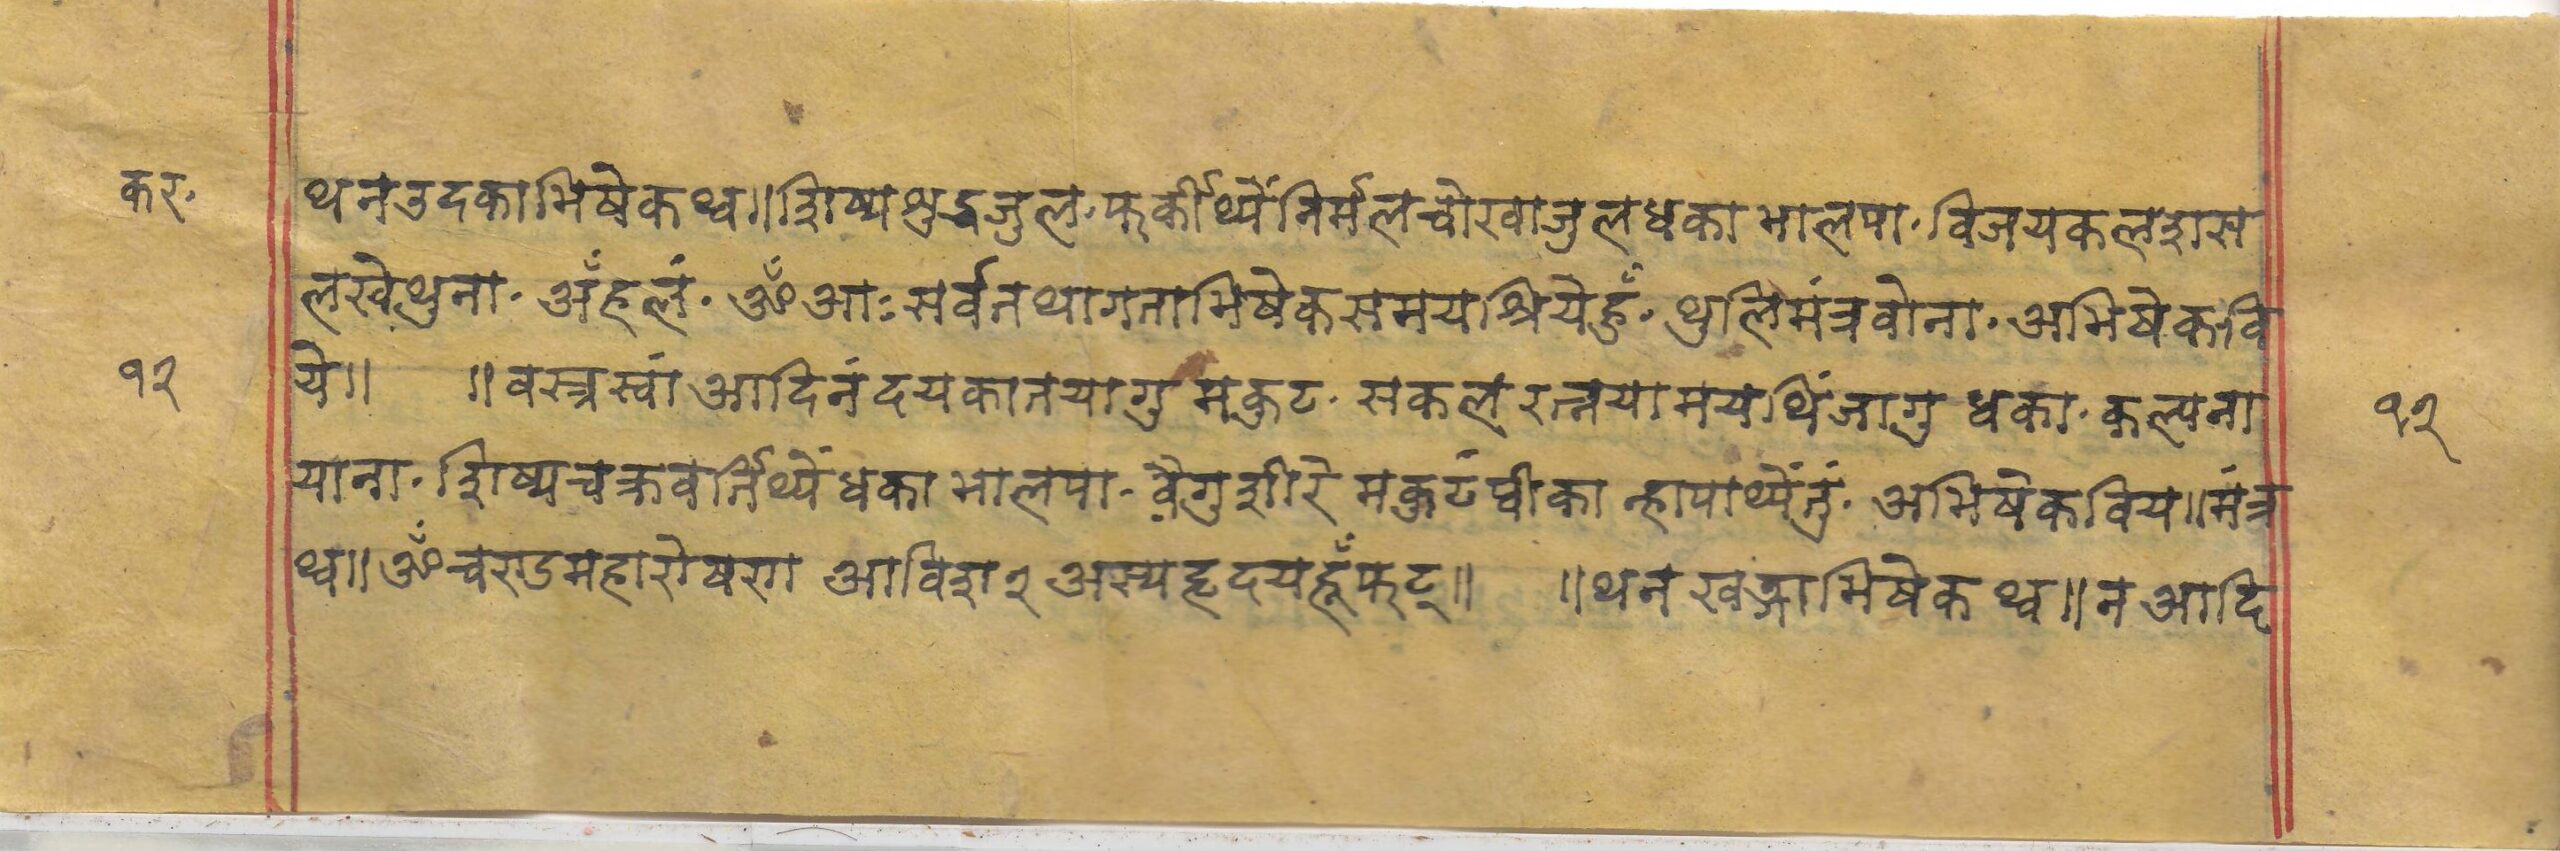 कर॰ थन उदकाभिषेक थ्व॥ शिष्य शुद्ध जुल॰ फर्कीथ्यें निर्मल चोखा जुल धका भालपा॰ विजयकलशस
लखे थुना॰ अँ ह लं॰ ॐ आः सर्वतथागताभिषेकसमयश्रिये हुँ॰ थुलि मंत्र वोना॰ अभिषेक वि
१२ ये॥ ॥ वस्त्र स्वां आदिनं दयका तयागु मकुट॰ सकलं रत्नया मय थिंजागु धका॰ कल्पना १२
याना॰ शिष्य चक्रवर्तिथ्यें धका भालपा॰ वैगु शीरे मकुटं प्वीका न्हापाथ्यें तुं॰ अभिषेक विय॥ मंत्र
थ्व॥ ॐ चण्डमहारोषण आविश २ अस्य हृदय हूँ फट्॥ ॥ थन खड्गाभिषेक थ्व॥ न आदि